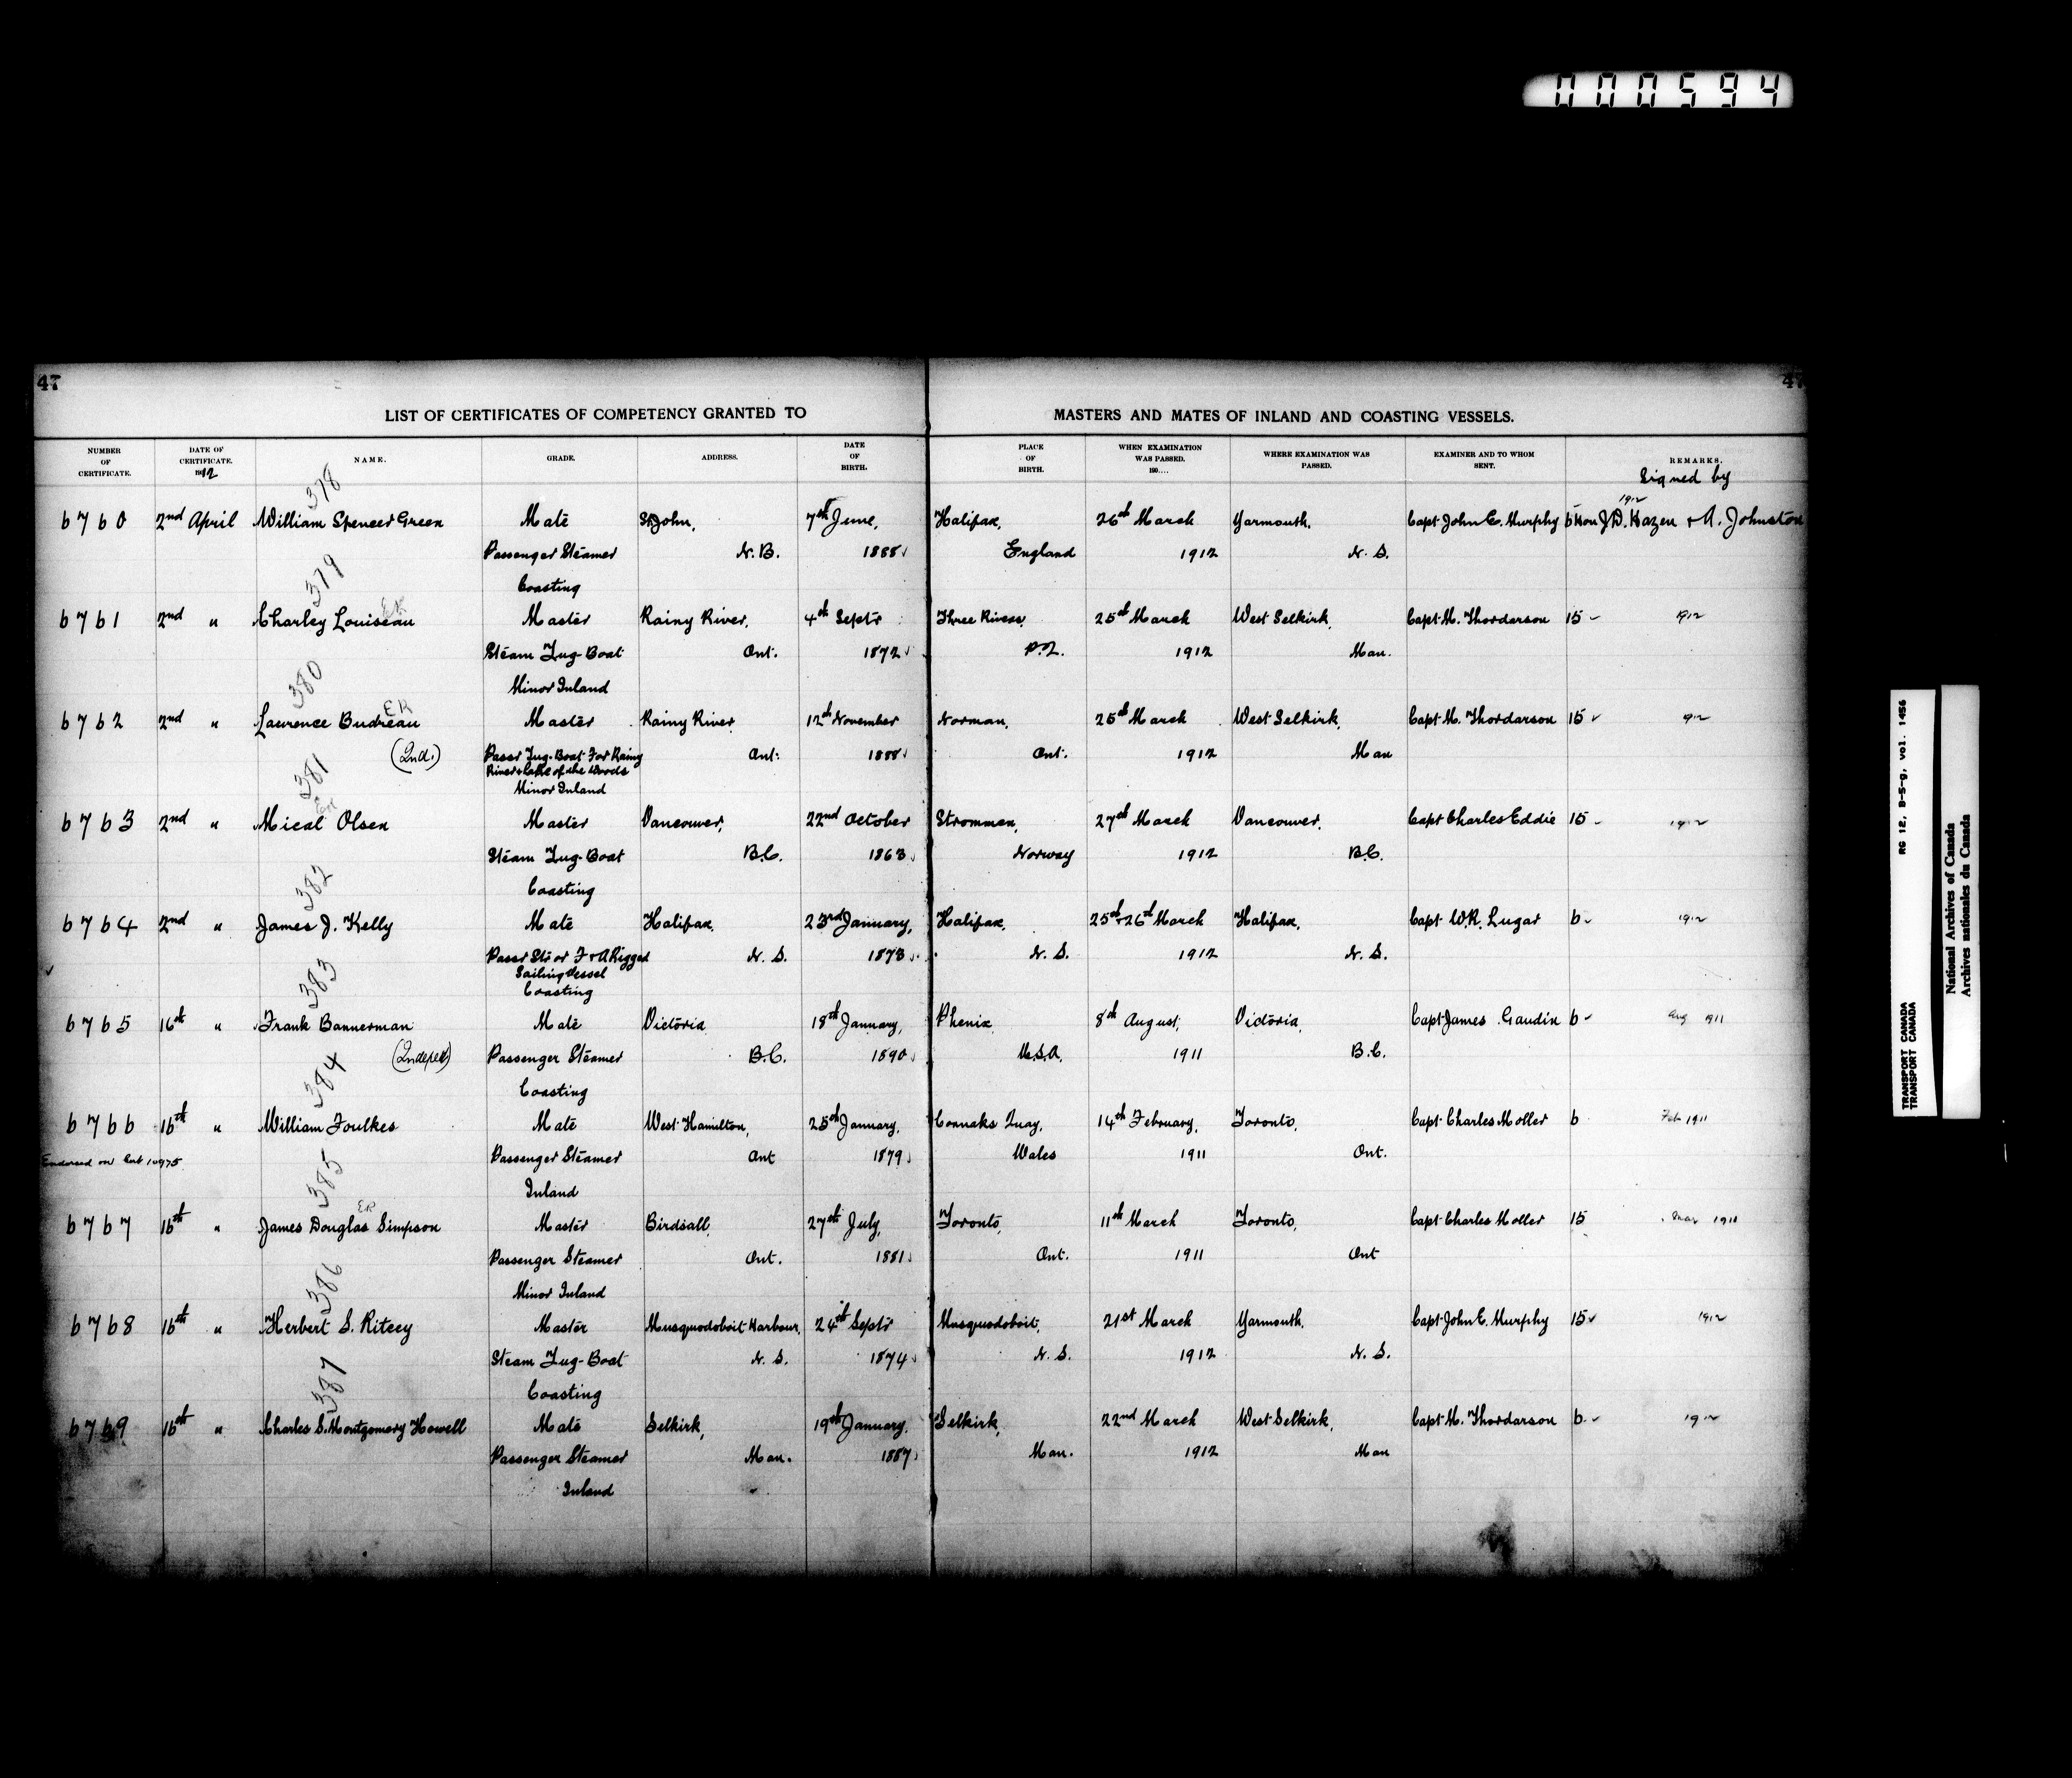 000594
47
47
LIST OF CERTIFICATES OF COMPETENCY GRANTED TO MASTERS AND MATES OF INLAND AND COASTING VESSELS.
NUMBER OF CERTIFICATE. DATE OF CERTIFICATE. 1912 NAME. GRADE. ADDRESS. DATE OF BIRTH. PLACE OF BIRTH. WHEN EXAMINATION WAS PASSED. 190.... WHERE EXAMINATION WAS PASSED. EXAMINER AND TO WHOM SENT. REMARKS.
Signed by
378 1912
6760 2nd April William Spencer Green Mate St John, 7th June, Halifax, 26th March Yarmouth, Capt John E. Murphy 6 Hon J.D. Hazen + A. Johnston
Passenger Steamer N.B. 1888 England 1912 N.S.
Coasting
379 ER
6761 2nd " Charley Louiseau Master Rainy River, 4th Septr Three Rivers, 25th March West Selkirk, Capt M. Thordarson 15 1912
Steam Tug-Boat Ont. 1872 P.Q. 1912 Man.
Minor Inland
380 ER
6762 2nd " Laurence Budreau Master Rainy River, 12th November Norman, 25th March West Selkirk, Capt M. Thordarson 15 912
(Ind.) Passr Tug-Boat For Rainy Ont. 1888 Ont. 1912 Man
River & Lake of the Woods
Minor Inland
381
6763 2nd " Mical Olsen Master Vancouver, 22nd October Strommen, 27th March Vancouver, Capt Charles Eddie 15 1912
Steam Tug-Boat B.C. 1863 Norway 1912 B.C.
Coasting
382
6764 2nd " James J. Kelly Mate Halifax, 23rd January, Halifax, 25th + 26th March Halifax, Capt W.R. Lugar 6 1912
Passr Str or F + A Rigged N.S. 1873 N.S. 1912 N.S.
Sailing Vessel
Coasting
383
6765 16th " Frank Bannerman Mate Victoria, 18th January, Phenix 8th August, Victoria, Capt James Gaudin 6 Aug 1911
(Indepen) Passenger Steamer B.C. 1890 U.S.A. 1911 B.C.
Coasting
384
6766 16th " William Foulkes Mate West Hamilton, 25th January, Connahs Quay, 14th February, Toronto, Capt Charles Moller 6 Feb 1911
Endorsed on Cert 10975 Passenger Steamer Ont 1879 Wales 1911 Ont.
Inland
385 ER
6767 16th " James Douglas Simpson Master Birdsall, 27th July, Toronto, 11th March Toronto, Capt Charles Moller 15 Mar 1911
Passenger Steamer Ont. 1881 Ont. 1911 Ont
Minor Inland
386
6768 16th " Herbert S. Ritcey Master Musquodoboit Harbour, 24th Septr Musquodoboit, 21st March Yarmouth, Capt John E. Murphy 15 1912
Steam Tug-Boat N.S. 1874 N.S. 1912 N.S.
Coasting
387
6769 16th " Charles S. Montgomery Howell Mate Selkirk, 19th January, Selkirk, 22nd March West Selkirk, Capt M. Thordarson 6 1912
Passenger Steamer Man. 1887 Man. 1912 Man
Inland
TRANSPORT CANADA RG 12, B-5-g, vol. 1456
TRANSPORT CANADA
National Archives of Canada
Archives nationales du Canada